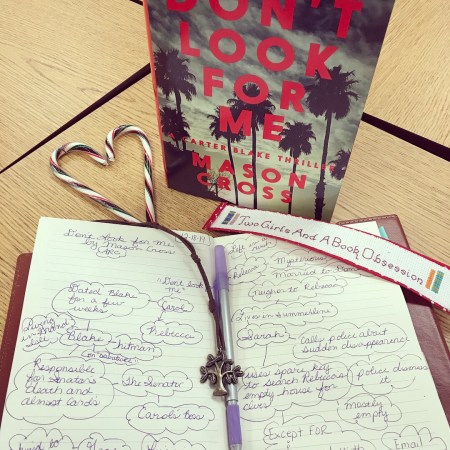 DON'T
LOOK
FOR
ME
A CARTER BLAKE THRILLER
MASON
CROSS
Two Girls And A Book Obsession
Don't look for me
by Mason Cross
Dated Blake
for a few
weeks
Don't look
me
Carol
Rebecca
Blake
hitman
on sabatical
Responsible
for Senators
death and
almost Carols
The Senator
Carols bos
Left
Rebecca
Mysterious
Married to
Neighbor to Rebecca
Lives in Summerlin
Sarah
Calls police about
sudden disappearance
uses spare key
to search Rebecca's
empty house for
clues
Police dismiss
it
Mostly
empty
Except For
Email
with